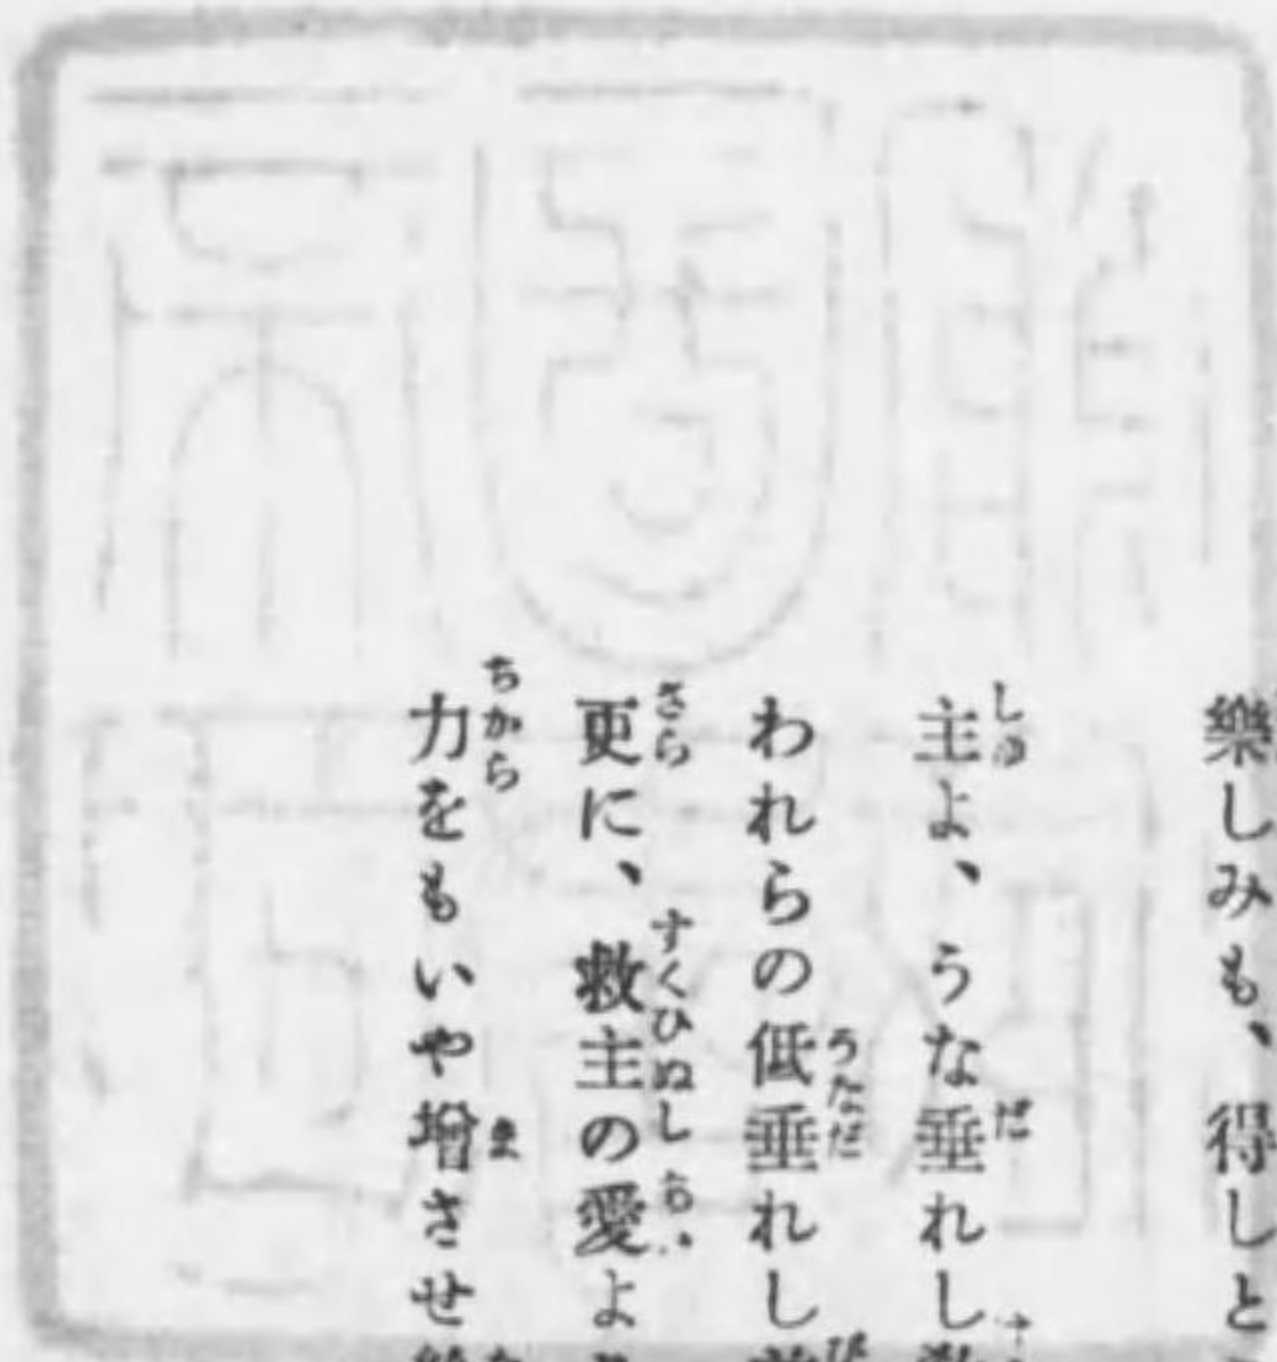 樂しみも、得しと
主よ、うな垂れし
われらの低垂れし
更に、救主の愛よ
力をもいや増させ